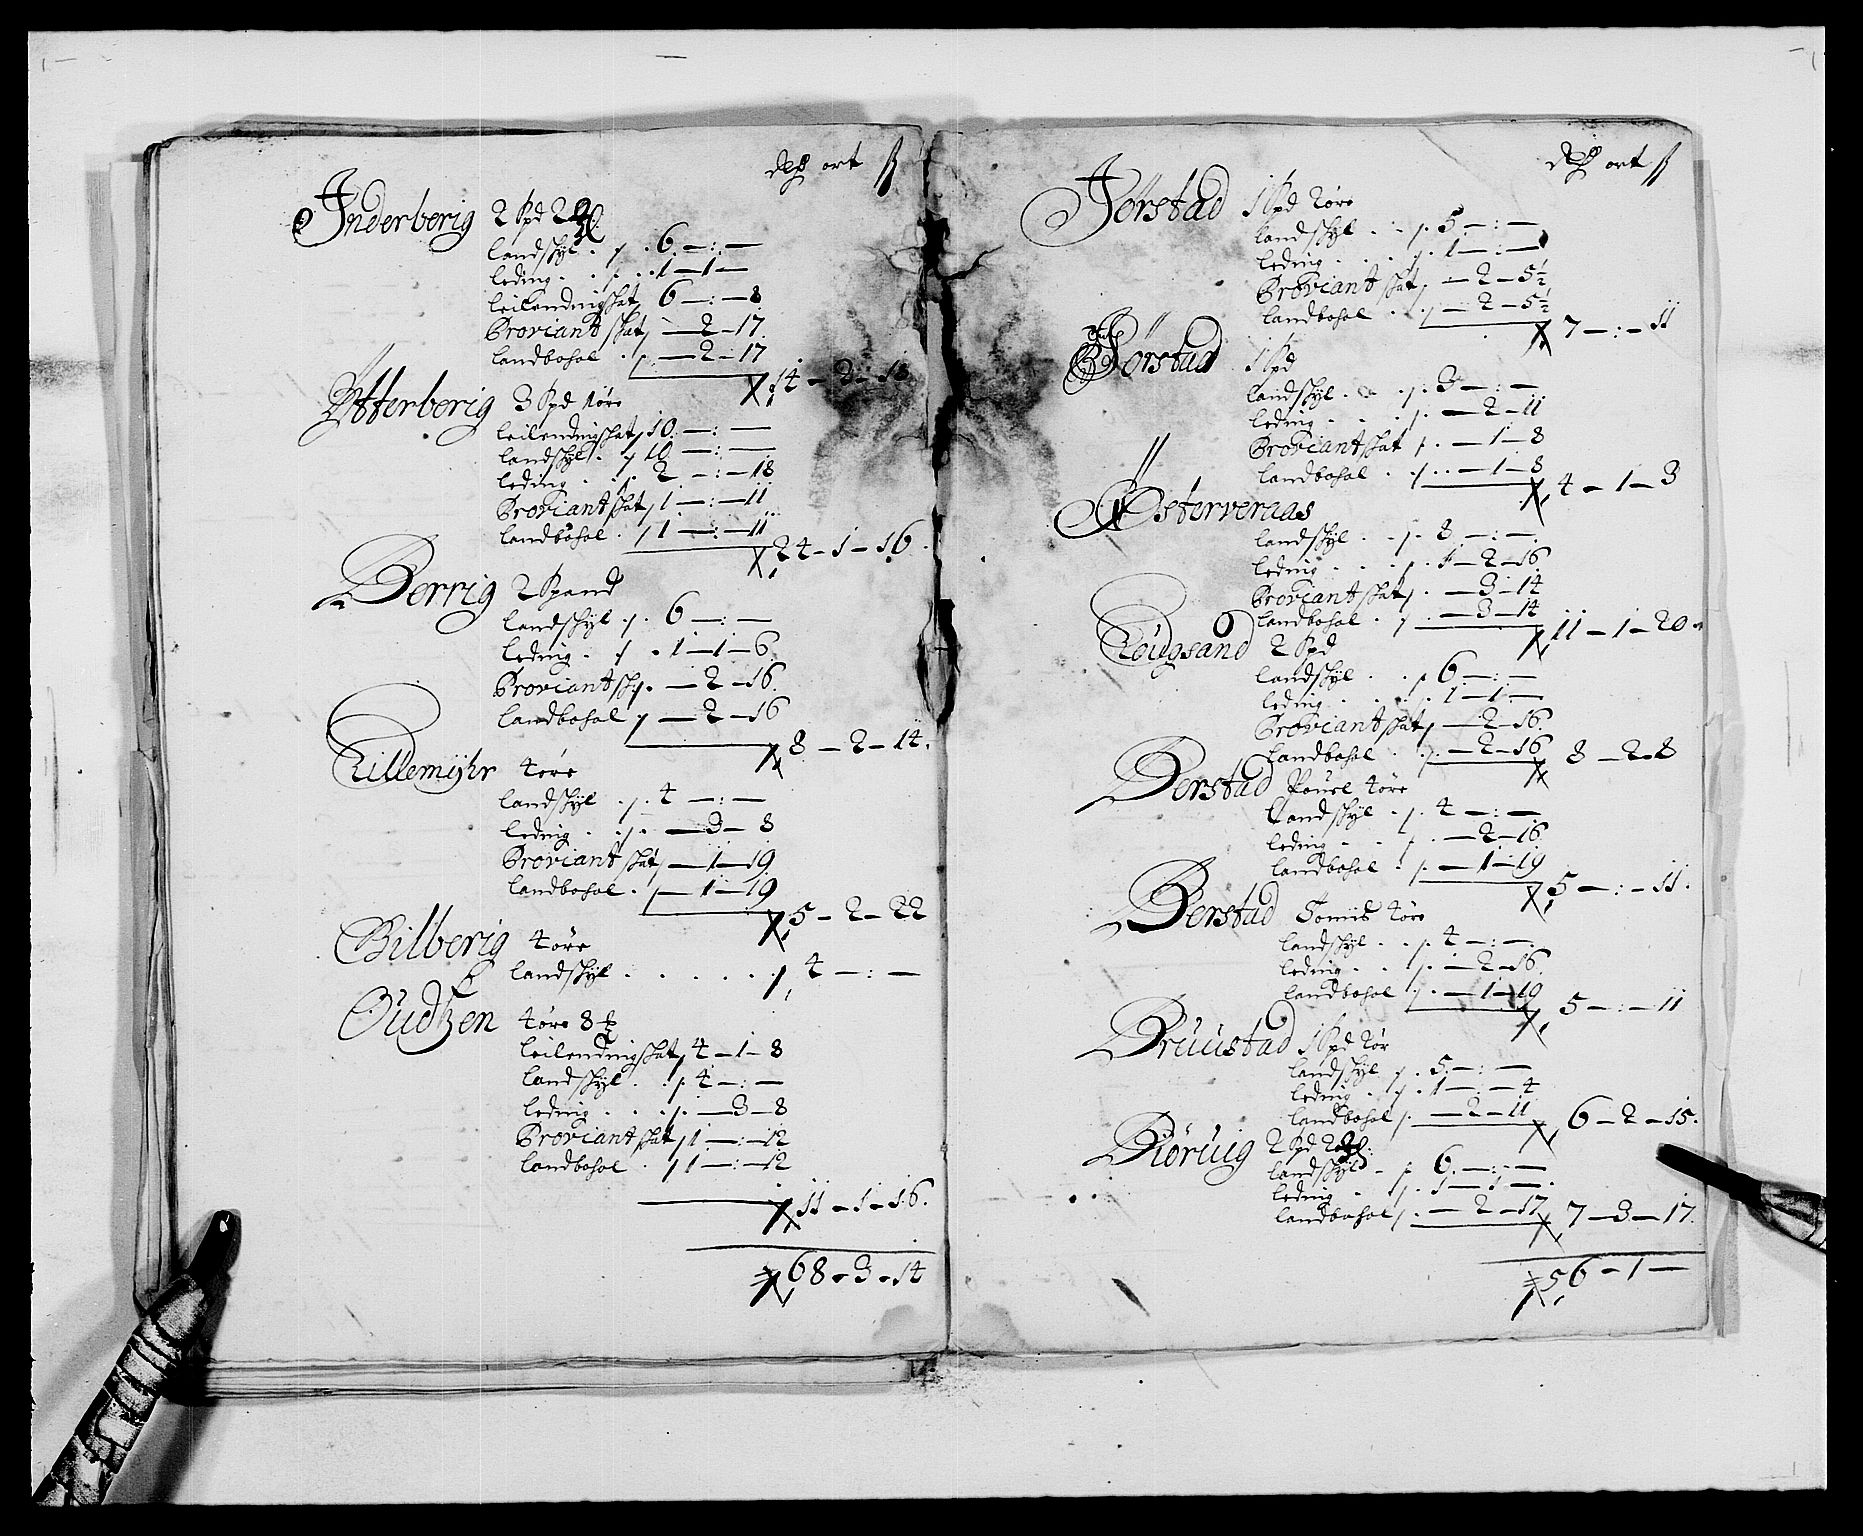 ort ß
Inderberig 2 Spd 2
landskyl 6 — : —
leding 1 — 1 —
leilendingskat 6 — : — 8
Proviantskat — 2 — 17
landbohol — 2 — 17
14 — 2 — 18
Ytterberig 3 Spd 1øre
leilendingskat 10 — : —
landskyl 10 — : —
leding 2 — : — 18
Proviantskat 1 — : — 11
landbohol 1 — : — 11
24 — 1 — 16
Berrig 2 Spand
landskyl 6 — : —
leding 1 — 1 — 6
Proviantsk — 2 — 16
landbohol — 2 — 16
8 — 2 — 14
Lillemyhr 4øre
landskyl 4 — : —
leding — 3 — 8
Proviantskat — 1 — 19
landbohol — 1 — 19
5 — 2 — 22
Bilberig 4øre
landskyl 4 — : —
Oudtzen 4øre 8
leilendingskat 4 — 1 — 8
landskyl 4 — : —
leding — 3 — 8
Proviantskat 1 — : — 12
landbohol 1 — : — 12
11 — 1 — 16
68 — 3 — 14
ort ß
Jørstad 1 Spd 2øre
landskyl 5 — : —
leding 1 — : —
Proviantskat — 2 — 5½
landbohol — 2 — 5½
7 — : — 11
Børstad 1 Spd
landskyl 3 — : —
leding — 2 — 11
Proviantskat — 1 — 8
landbohol — 1 — 8
4 — 1 — 3
Østerveraas
landskyl 8 — : —
leding 1 — 2 — 16
Proviantskat — 3 — 14
landbohol — 3 — 14
11 — 1 — 20
Lougsand 2 Spd
landskyl 6 — : —
leding 1 — 1 —
Proviantskat — 2 — 16
landbohol — 2 — 16
8 — 2 — 8
Berstad Pouel 4øre
landskyl 4 — : —
leding — 2 — 16
landbohol — 1 — 19
5 — : — 11
Berstad Tomis 4øre
landskyl 4 — : —
leding — 2 — 16
landbohol — 1 — 19
5 — : — 11
Bruustad 1 Spd 2ør
landskyl 5 — : —
leding 1 — : — 4
landbohol — 2 — 11
6 — 2 — 15
Biøruig 2 Spd 2
landskyl 6 — : —
leding 1 — 1 —
landbohol — 2 — 17
7 — 3 — 17
56 — 1 —